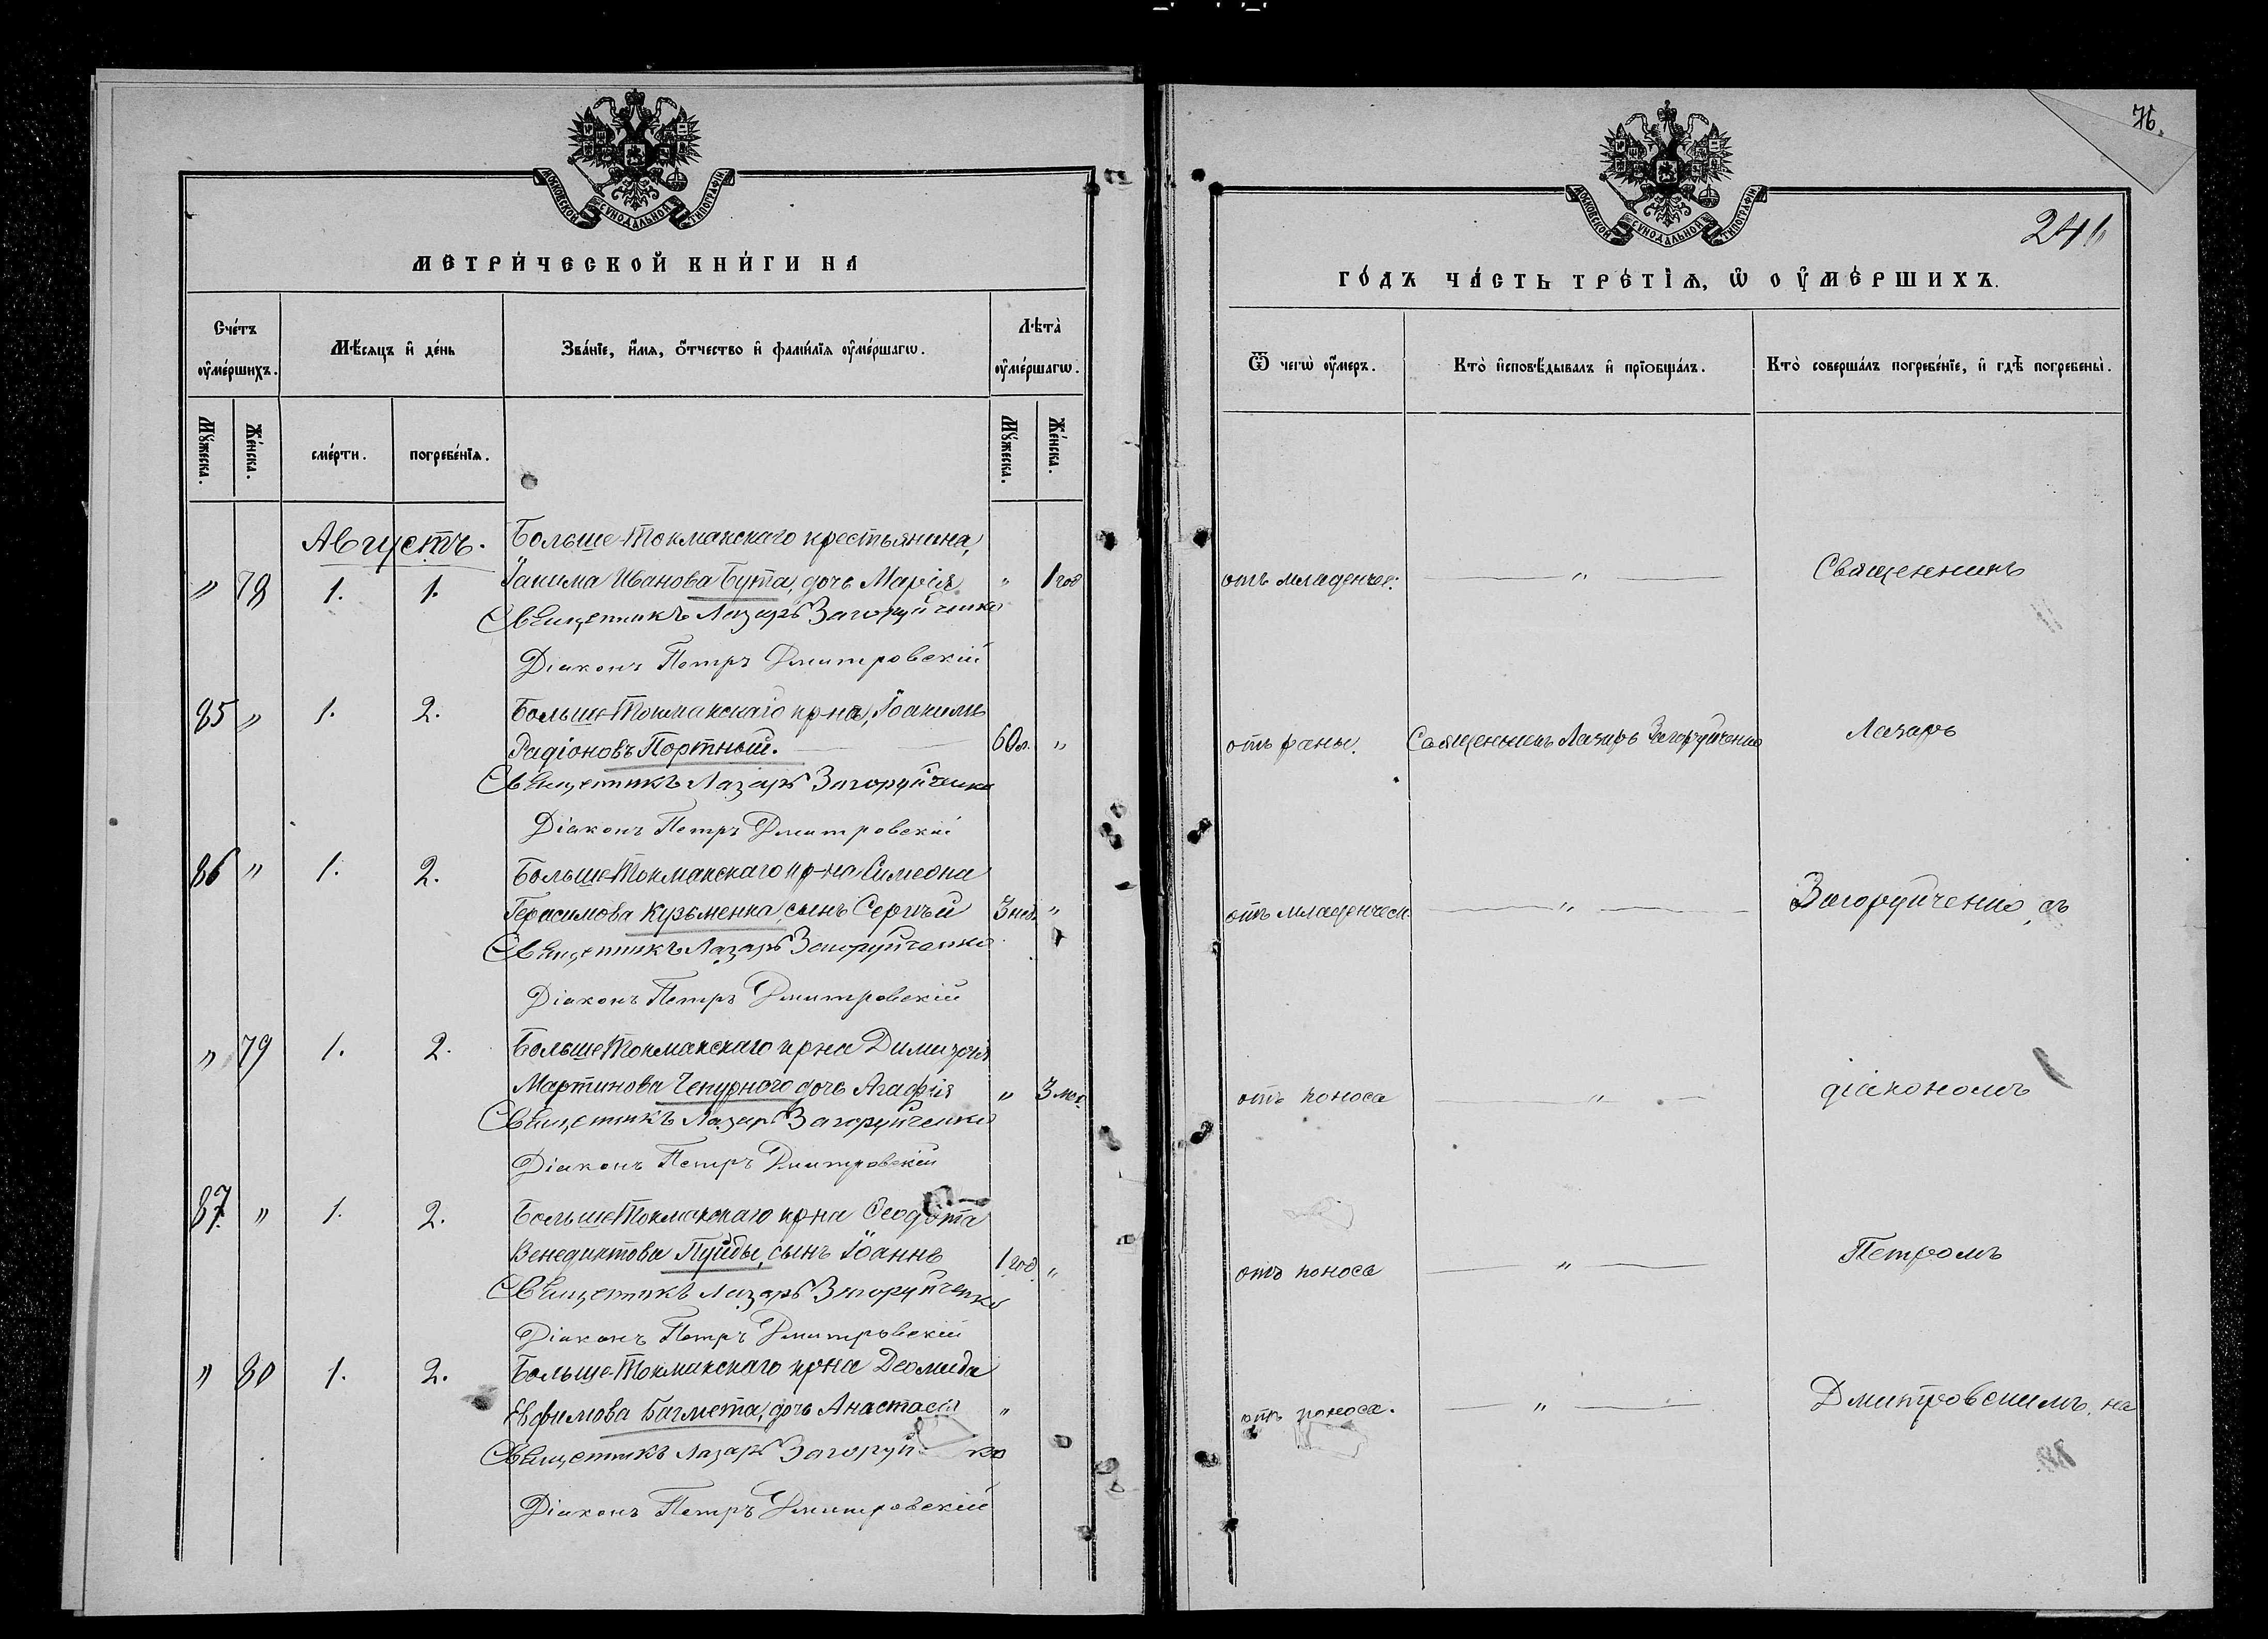 МОСКОВСКОЙ СѴНОДАЛЬНОЙ ТИПОГРАФІИ
МЕТРИ́ЧЕСКОЙ КНИ́ГИ НА
Сче́тъ ᲂу҆ме́ршихъ.
Мѣ́сяцъ и҆ де́нь
Зва́нїе, и҆́мя, ѻ҆́тчество и҆ фами́лїя ᲂу҆ме́ршагѡ.
Лѣта̀ ᲂу҆ме́ршагѡ.
Мꙋ́жеска.
Же́нска.
сме́рти.
погребе́нїѧ.
Мꙋ́жеска.
Же́нска.
Августъ.
Больше-Токмакскаго крестьянина,
" 78 1. 1. Іакима Иванова Бута, дочь Марія " 1 год
Священникъ Лазарь Загоруйченко
Діаконъ Петръ Дмитровскій
85 " 1. 2. Больше-Токмакскаго кр-на, Іоакимъ
Радіоновъ Портный. 60 л. "
Священникъ Лазарь Загоруйченко
Діаконъ Петръ Дмитровскій
86 " 1. 2. Больше-Токмакскаго кр-на Симеона
Герасимова Кузьменка, сынъ Сергѣй 3 нед. "
Священникъ Лазарь Загоруйченко
Діаконъ Петръ Дмитровскій
" 79 1. 2. Больше-Токмакскаго кр-на Димитрія
Мартинова Чепурного дочь Агафія " 3 мѣс.
Священникъ Лазарь Загоруйченко
Діаконъ Петръ Дмитровскій
87. " 1. 2. Больше-Токмакскаго кр-на Ѳеодота
Венедиктова Пуйды, сынъ Іоаннъ 1 год. "
Священникъ Лазарь Загоруйченко
Діаконъ Петръ Дмитровскій
" 80 1. 2. Больше-Токмакскаго кр-на Деомида
Евфимова Багмета, дочь Анастасія "
Священникъ Лазарь Загоруй ко
Діаконъ Петръ Дмитровскій
76.
241
МОСКОВСКОЙ СѴНОДАЛЬНОЙ ТИПОГРАФІИ
ГО́ДЪ ЧА́СТЬ ТРЕ́ТЇѦ, Ѡ҆ ОУ҆МЕ́РШИХЪ.
Ѿ чегѡ̀ ᲂу҆́меръ.
Кто̀ и҆сповѣ́дывалъ и҆ прїобща́лъ.
Кто̀ соверша́лъ погребе́нїе, и҆ гдѣ̀ погребены̀.
отъ младенчес. " Священникъ
отъ раны. Священникъ Лазарь Загоруйченко Лазарь
отъ младенческ. " Загоруйченко, съ
отъ поноса " діакономъ
отъ поноса " Петромъ
отъ поноса. " Дмитровскимъ, на